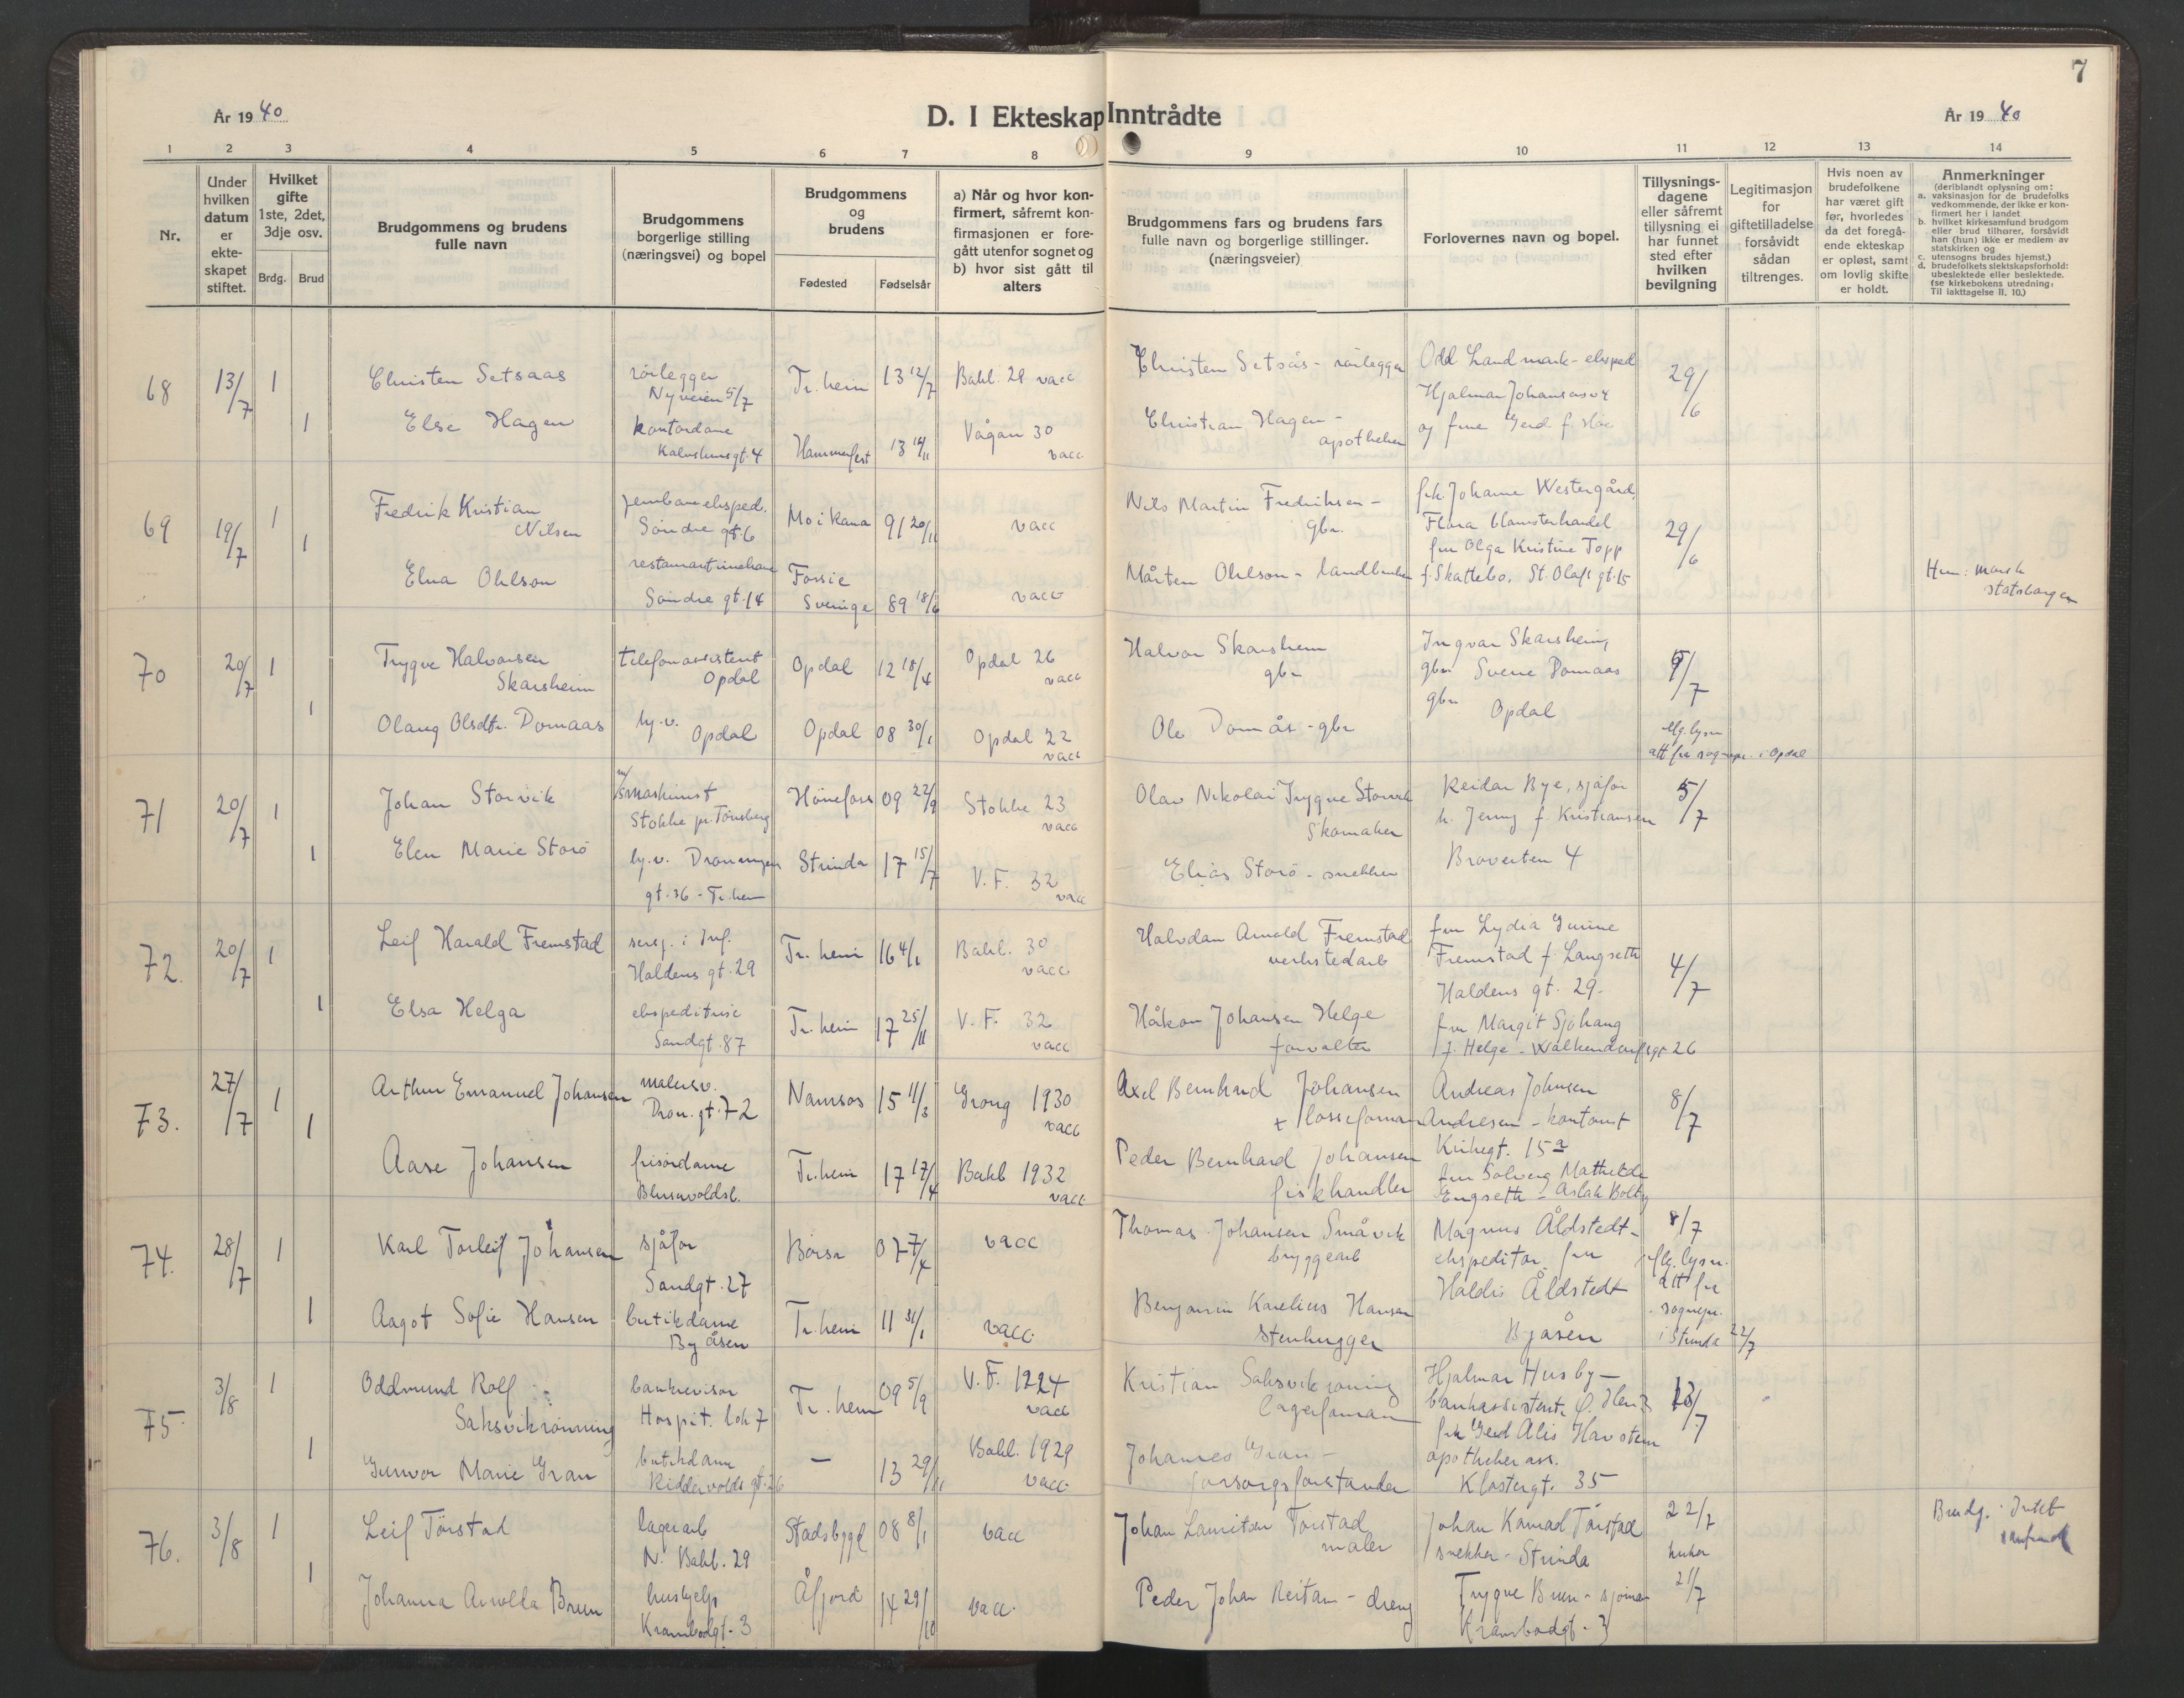 7
År 1940
D. I Ekteskap Inntrådte
År 1940
1 2 3 4 5 6 7 8 9 10 11 12 13 14
Nr.
Under hvilken datum er ekte-skapet stiftet.
Hvilket gifte 1ste, 2det, 3dje osv.
Brdg. Brud
Brudgommens og brudens fulle navn
Brudgommens borgerlige stilling (næringsvei) og bopel
Brudgommens og brudens
Fødested Fødselsår
a) Når og hvor kon-firmert, såfremt kon-firmasjonen er fore-gått utenfor sognet og b) hvor sist gått til alters
Brudgommens fars og brudens fars fulle navn og borgerlige stillinger. (næringsveier)
Forlovernes navn og bopel.
Tillysnings-dagene eller såfremt tillysning ei har funnet sted efter hvilken bevilgning
Legitimasjon for giftetilladelse forsåvidt sådan tiltrenges.
Hvis noen av brudefolkene har været gift før, hvorledes da det foregå-ende ekteskap er opløst, samt om lovlig skifte er holdt.
Anmerkninger
(deriblandt oplysning om:
a. vaksinasjon for de brudefolks vedkommende, der ikke er kon-firmert her i landet
b. hvilket kirkesamfund brudgom eller brud tilhører, forsåvidt han (hun) ikke er medlem av statskirken og
c. utensogns brudes hjemst.)
d. brudefolkets slektskapsforhold: ubeslektede eller beslektede.
(se kirkebokens utredning: Til iakttagelse II. 10.)
68 13/7 1 Christen Setsaas rørlegger Nyveien 5/7 Tr.heim 13 12/7 Bakl. 29 vacc Christen Setsås - rørlegger Odd Landmark - eksped 29/6
1 Else Hagen kontordame Hammerfest 13 Vågan 30 vacc Christian Hagen - apotheker og frue Gerd f.
69 19/7 1 Fredrik Kristian Nilsen jernbaneeksped. Søndre gt. 6 Mo i Rana 91 20/11 vacc Nils Martin Fredriksen - gbr. frk. Johanne Westergård, Flora blomsterhandel 29/6
1 Elna Ohlson Søndre gt. 14 Sverige 89 18/6 vacc Mårten Ohlson - landbruker fru Olga Kristine Topp f. Skattebo. St. Olafs gt. 15
70 20/7 1 Trygve Halvorsen Skarsheim telefonassistent Opdal Opdal 12 18/4 Opdal 26 vacc Halvor Skarsheim gbr Ingvar Skarsheim, gbr 9/7
1 Olaug Olsdtr. Domaas hj.v. Opdal Opdal 08 30/1 Opdal 22 vacc Ole Domås - gbr Domaas gbr Opdal
71 20/7 1 Johan Storvik maskinist Stokke pr. Tønsberg Hønefoss 09 22/9 Stokke 23 vacc Olav Nikolai Trygve Storvik Skomaker Reidar Bye, sjåfør 5/7
1 Elen Marie Storø hj.v. Dronningen gt. 36 - Tr.heim Strinda 17 15/7 V.F. 32 vacc Elias Storø - snekker h. Jenny f. Kristiansen
72. 20/7 1 Leif Harald Fremstad Haldens gt. 29 Tr.heim 16 4/1 Bakl. 30 vacc Halvdan Arnold Fremstad verkstedarb fru Lydia Gurine Fremstad f. Langseth Haldens gt. 29. 4/7
1 Elsa Helga ekspeditrise Sandgt. 87 Tr.heim 17 25/11 V.F. 32 vacc Håkon Johansen Helge forvalter fru Margit Sjøhaug f. Helge - Walkendorfsgt 26
73. 27/7 1 Arthur Emanuel Johansen malersv. Dron. gt. 72 Namsos 15 11/3 Grong 1930 vacc Axel Bernhard Johansen + losseforman Andreas Johnsen Andresen - kontorist Kirkegt. 15a 8/7
1 Aase Johansen frisørdame Tr.heim 17 17/4 Bakl 1932 vacc Peder Bernhard Johansen fiskhandler fru Solveig Mathilde Engseth - Aslak Bolts
74. 28/7 1 Karl Torleif Johansen sjåfør Sandgt. 27 Børsa 07 7/4 vacc Thomas Johansen Småvik bryggearb Magnus Åldstedt - ekspeditør, fru 8/7
1 Aagot Sofie Hansen butikdame Byåsen Tr.heim 11 31/1 vacc. Benjamin Karelius Hansen stenhugger Haldis Åldstedt Byåsen 22/7
75 3/8 1 Oddmund Rolf Saksvikrønning bankrevisor Hospit. løk 7 Tr.heim 09 5/9 V.F. 1924 vacc Kristian Saksvikrønning lagerforman Hjalmar Husby - bankassistent 13/7
1 Gunvor Marie Gran butikdame Riddervolds gt. 26 — 13 29/11 Bakl. 1929 vacc. Johannes Gran - forsorgsforstander frk Gerd Alis Havstein apotheker ass. Klostergt. 35
76. 3/8 1 Leif Tørstad lagerarb N. Bakl. 29 Stadsbygd 08 8/1 vacc Johan Lauritsen Tørstad maler Johan Konrad Tørstad snekker - Strinda 22/7
1 Johanna Arnolda Bruun hushjelp Krambodgt. 3 Åfjord 14 29/10 vacc. Peder Johan Reitan - dreng Trygve Bruun - sjømann Krambodgt. 3 21/7